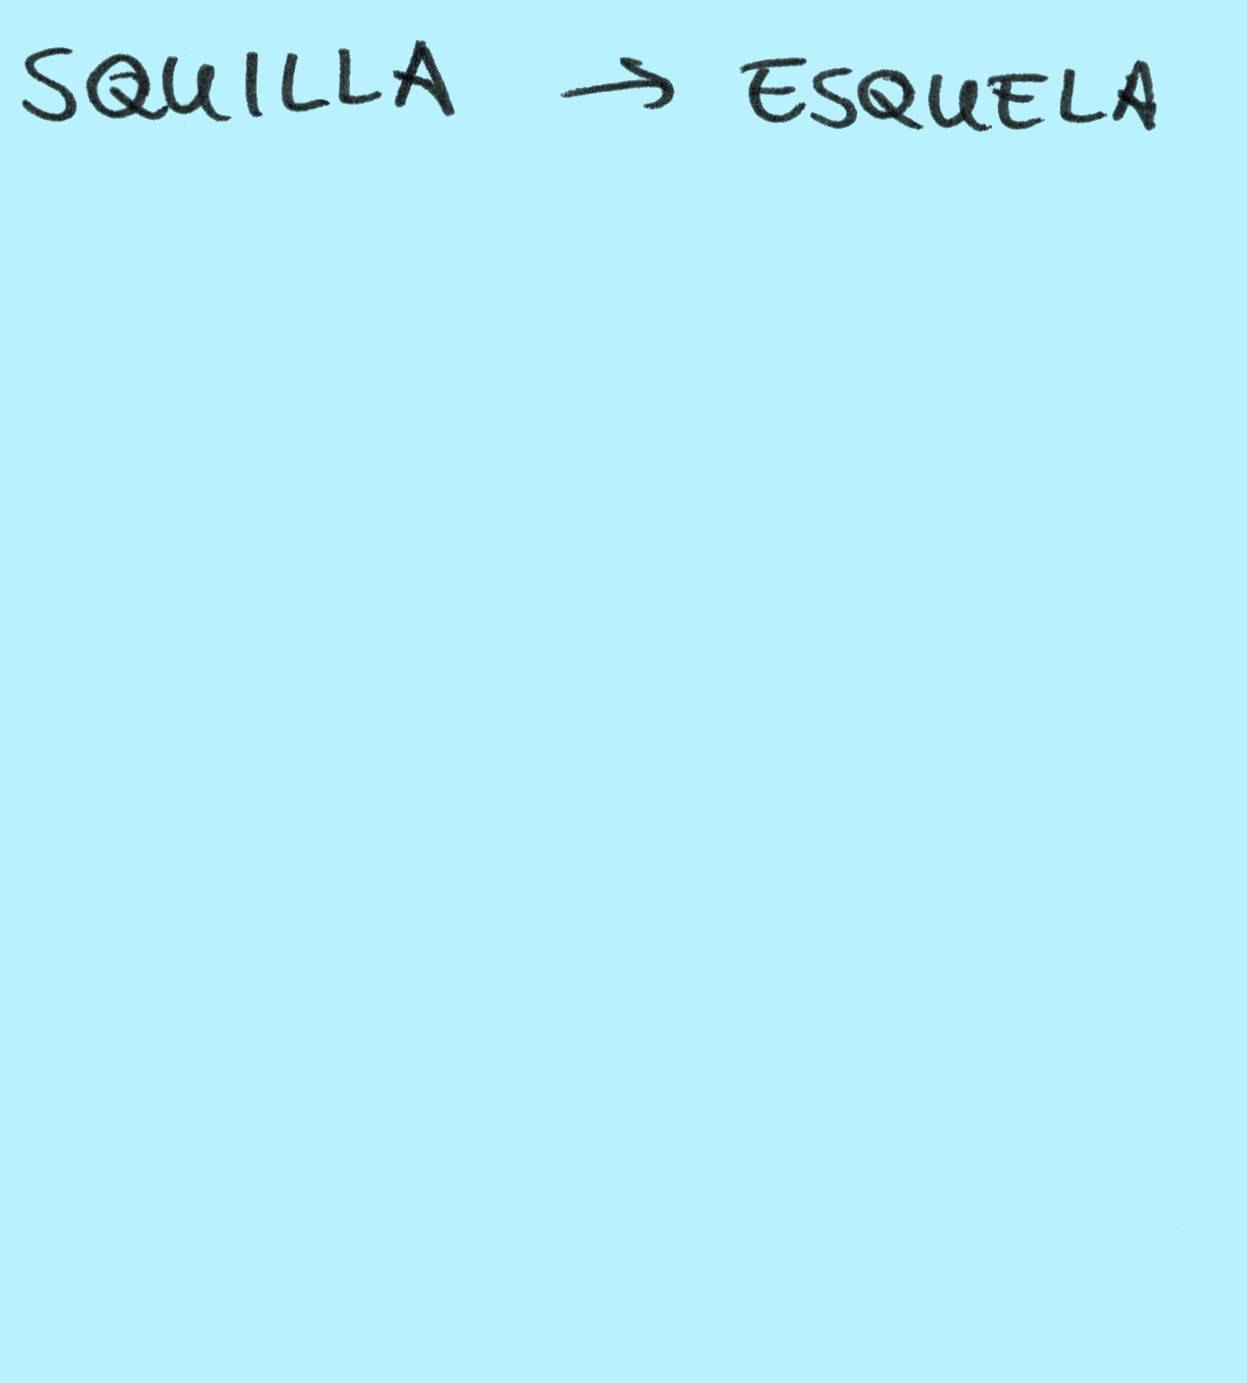 SQUILLA → ESQUELA